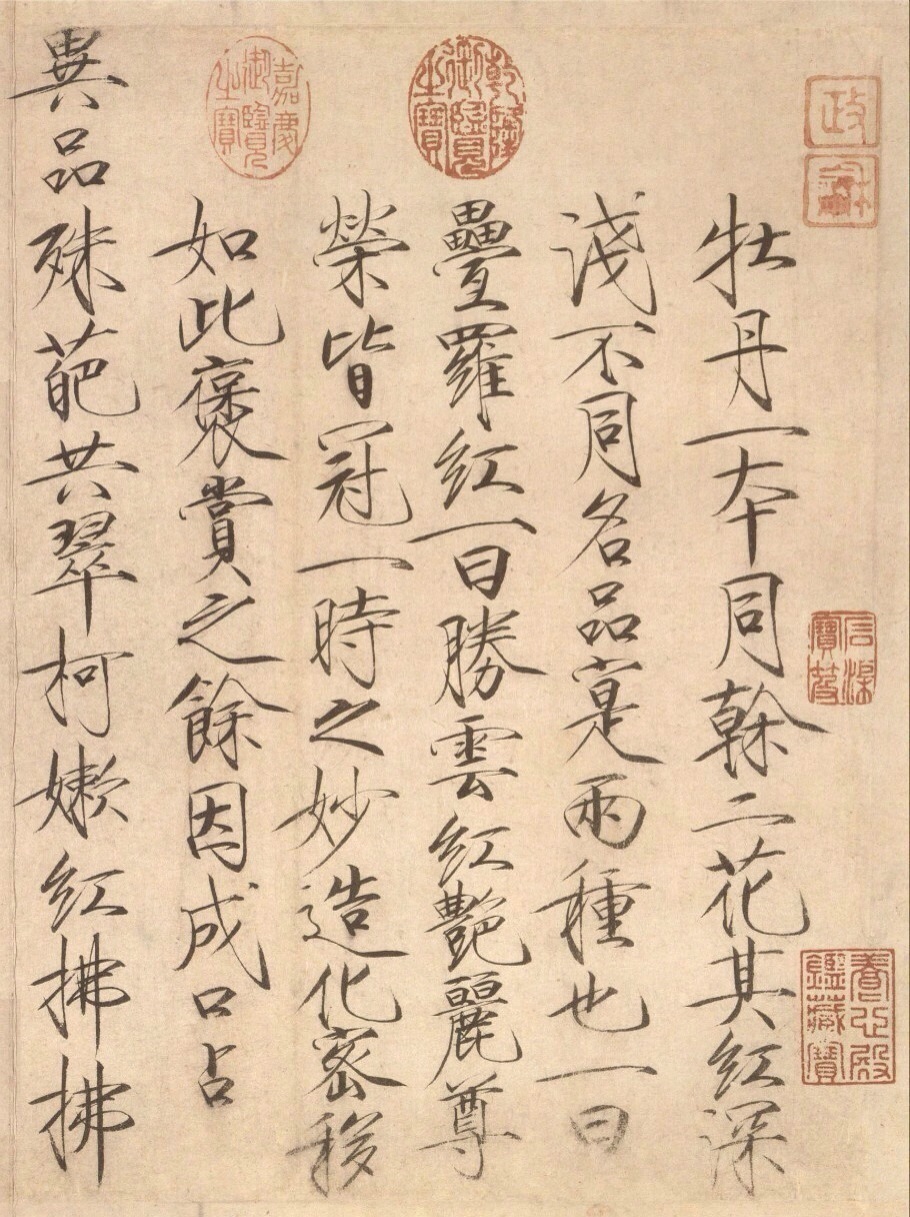 政
龢
石渠寶笈
養心殿鑑藏寶
牡丹一本同榦二花其紅深
淺不同名品寔兩種也一曰
乾隆御覽之寶
疊羅紅一曰勝雲紅艷麗尊
榮皆冠一時之妙造化密移
嘉慶御覽之寶
如此褒賞之餘因成口占
異品殊葩共翠柯嫩紅拂拂